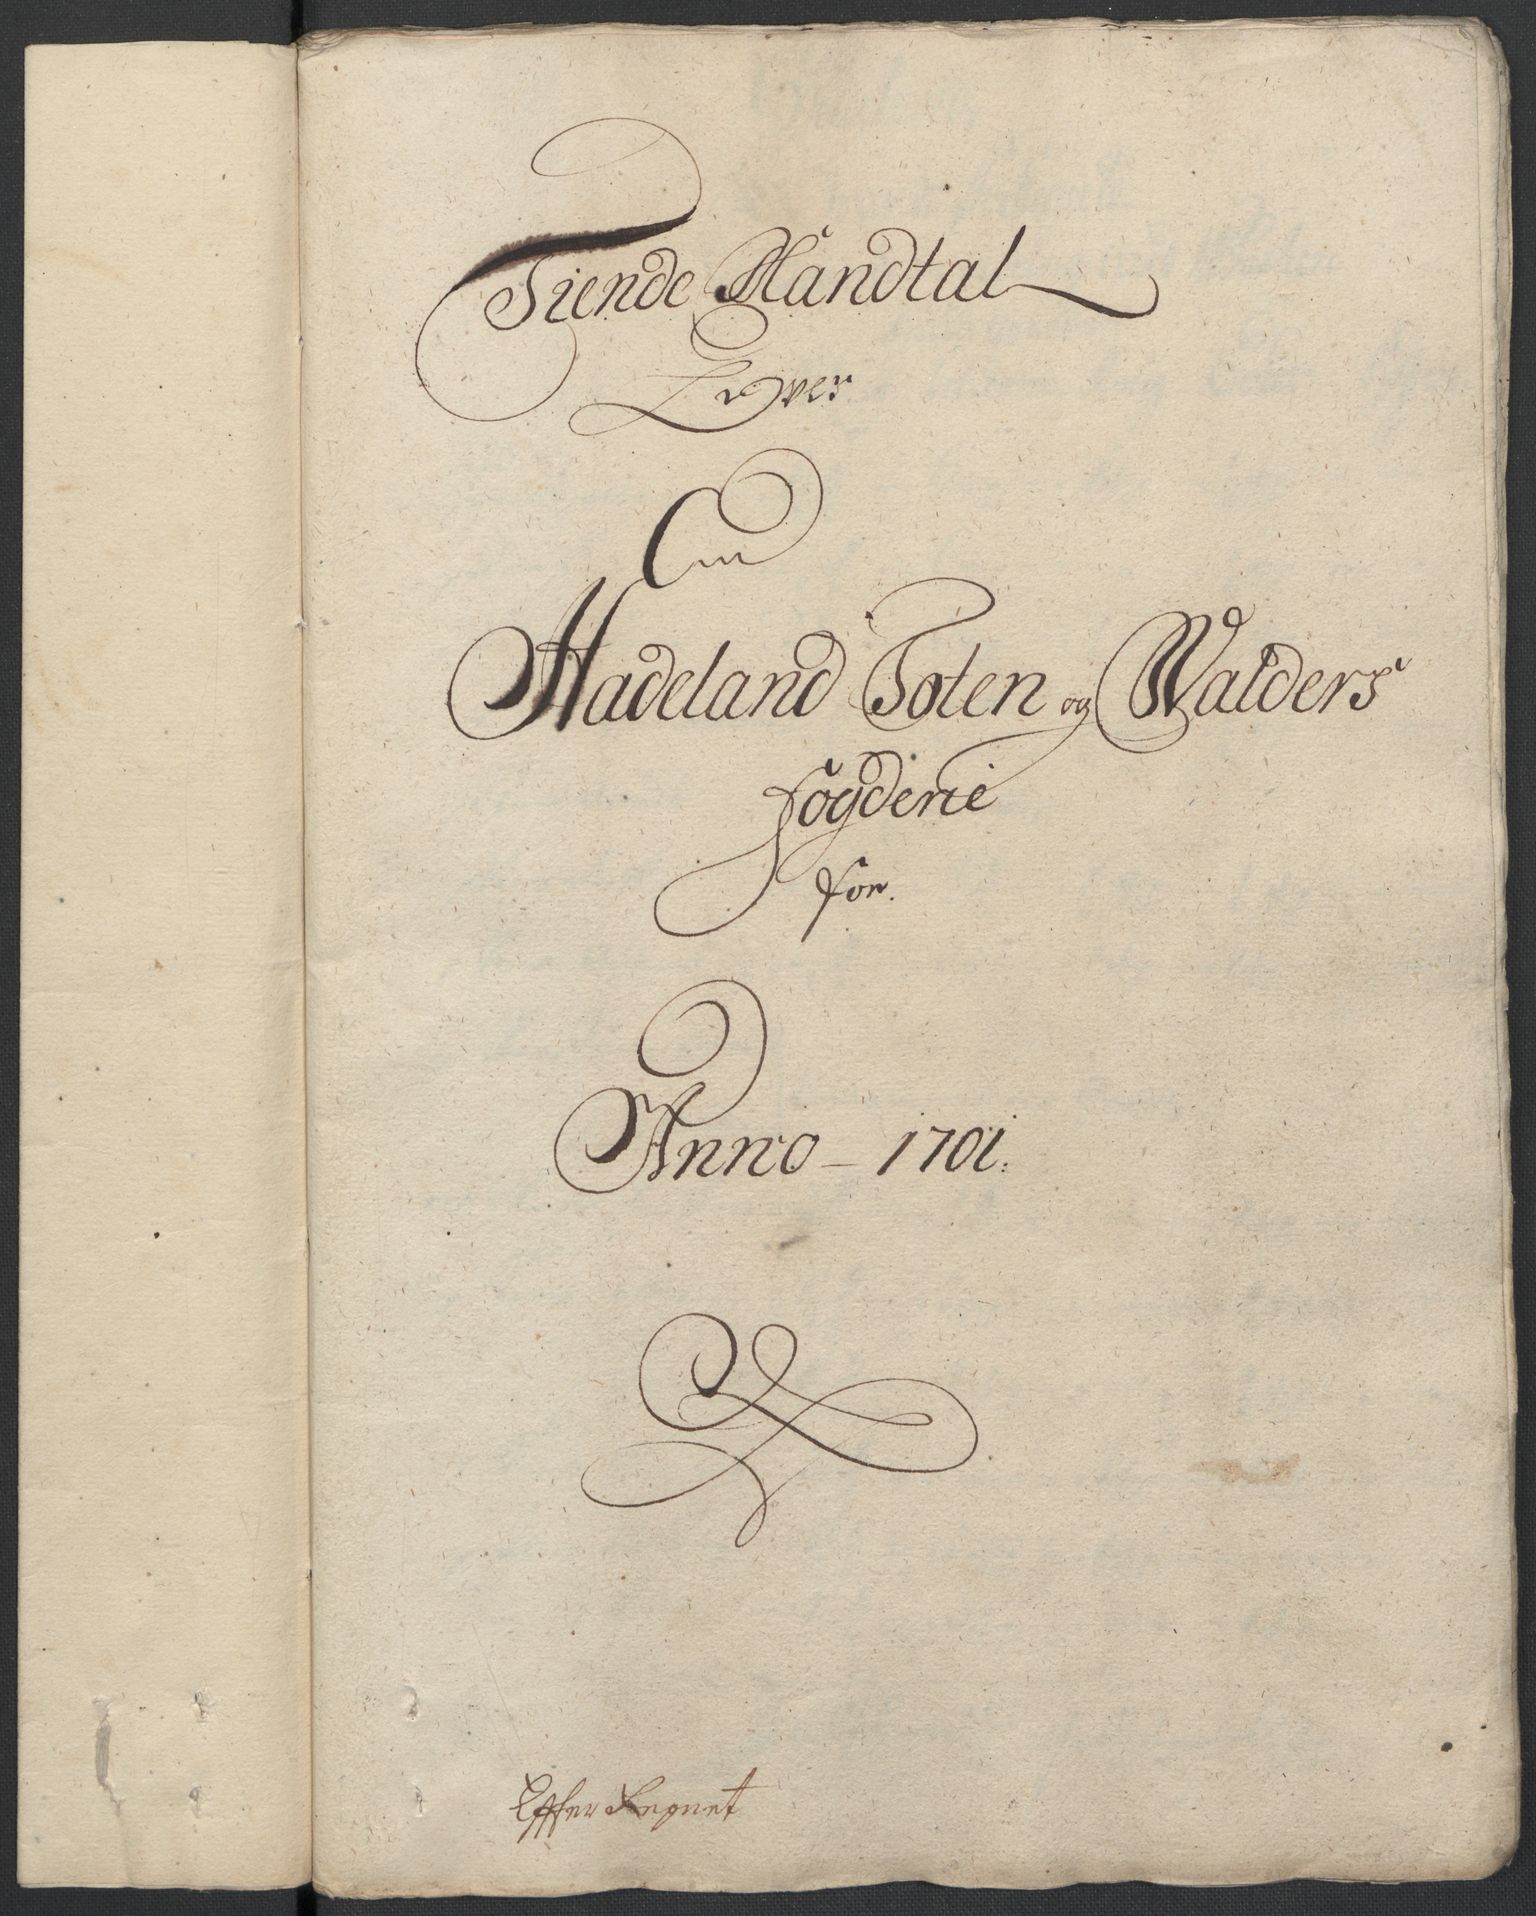 Tiende Mandtal
Over
Hadeland Toten og Walders
fogderie
for.
Anno - 1701.
Effter Regnet